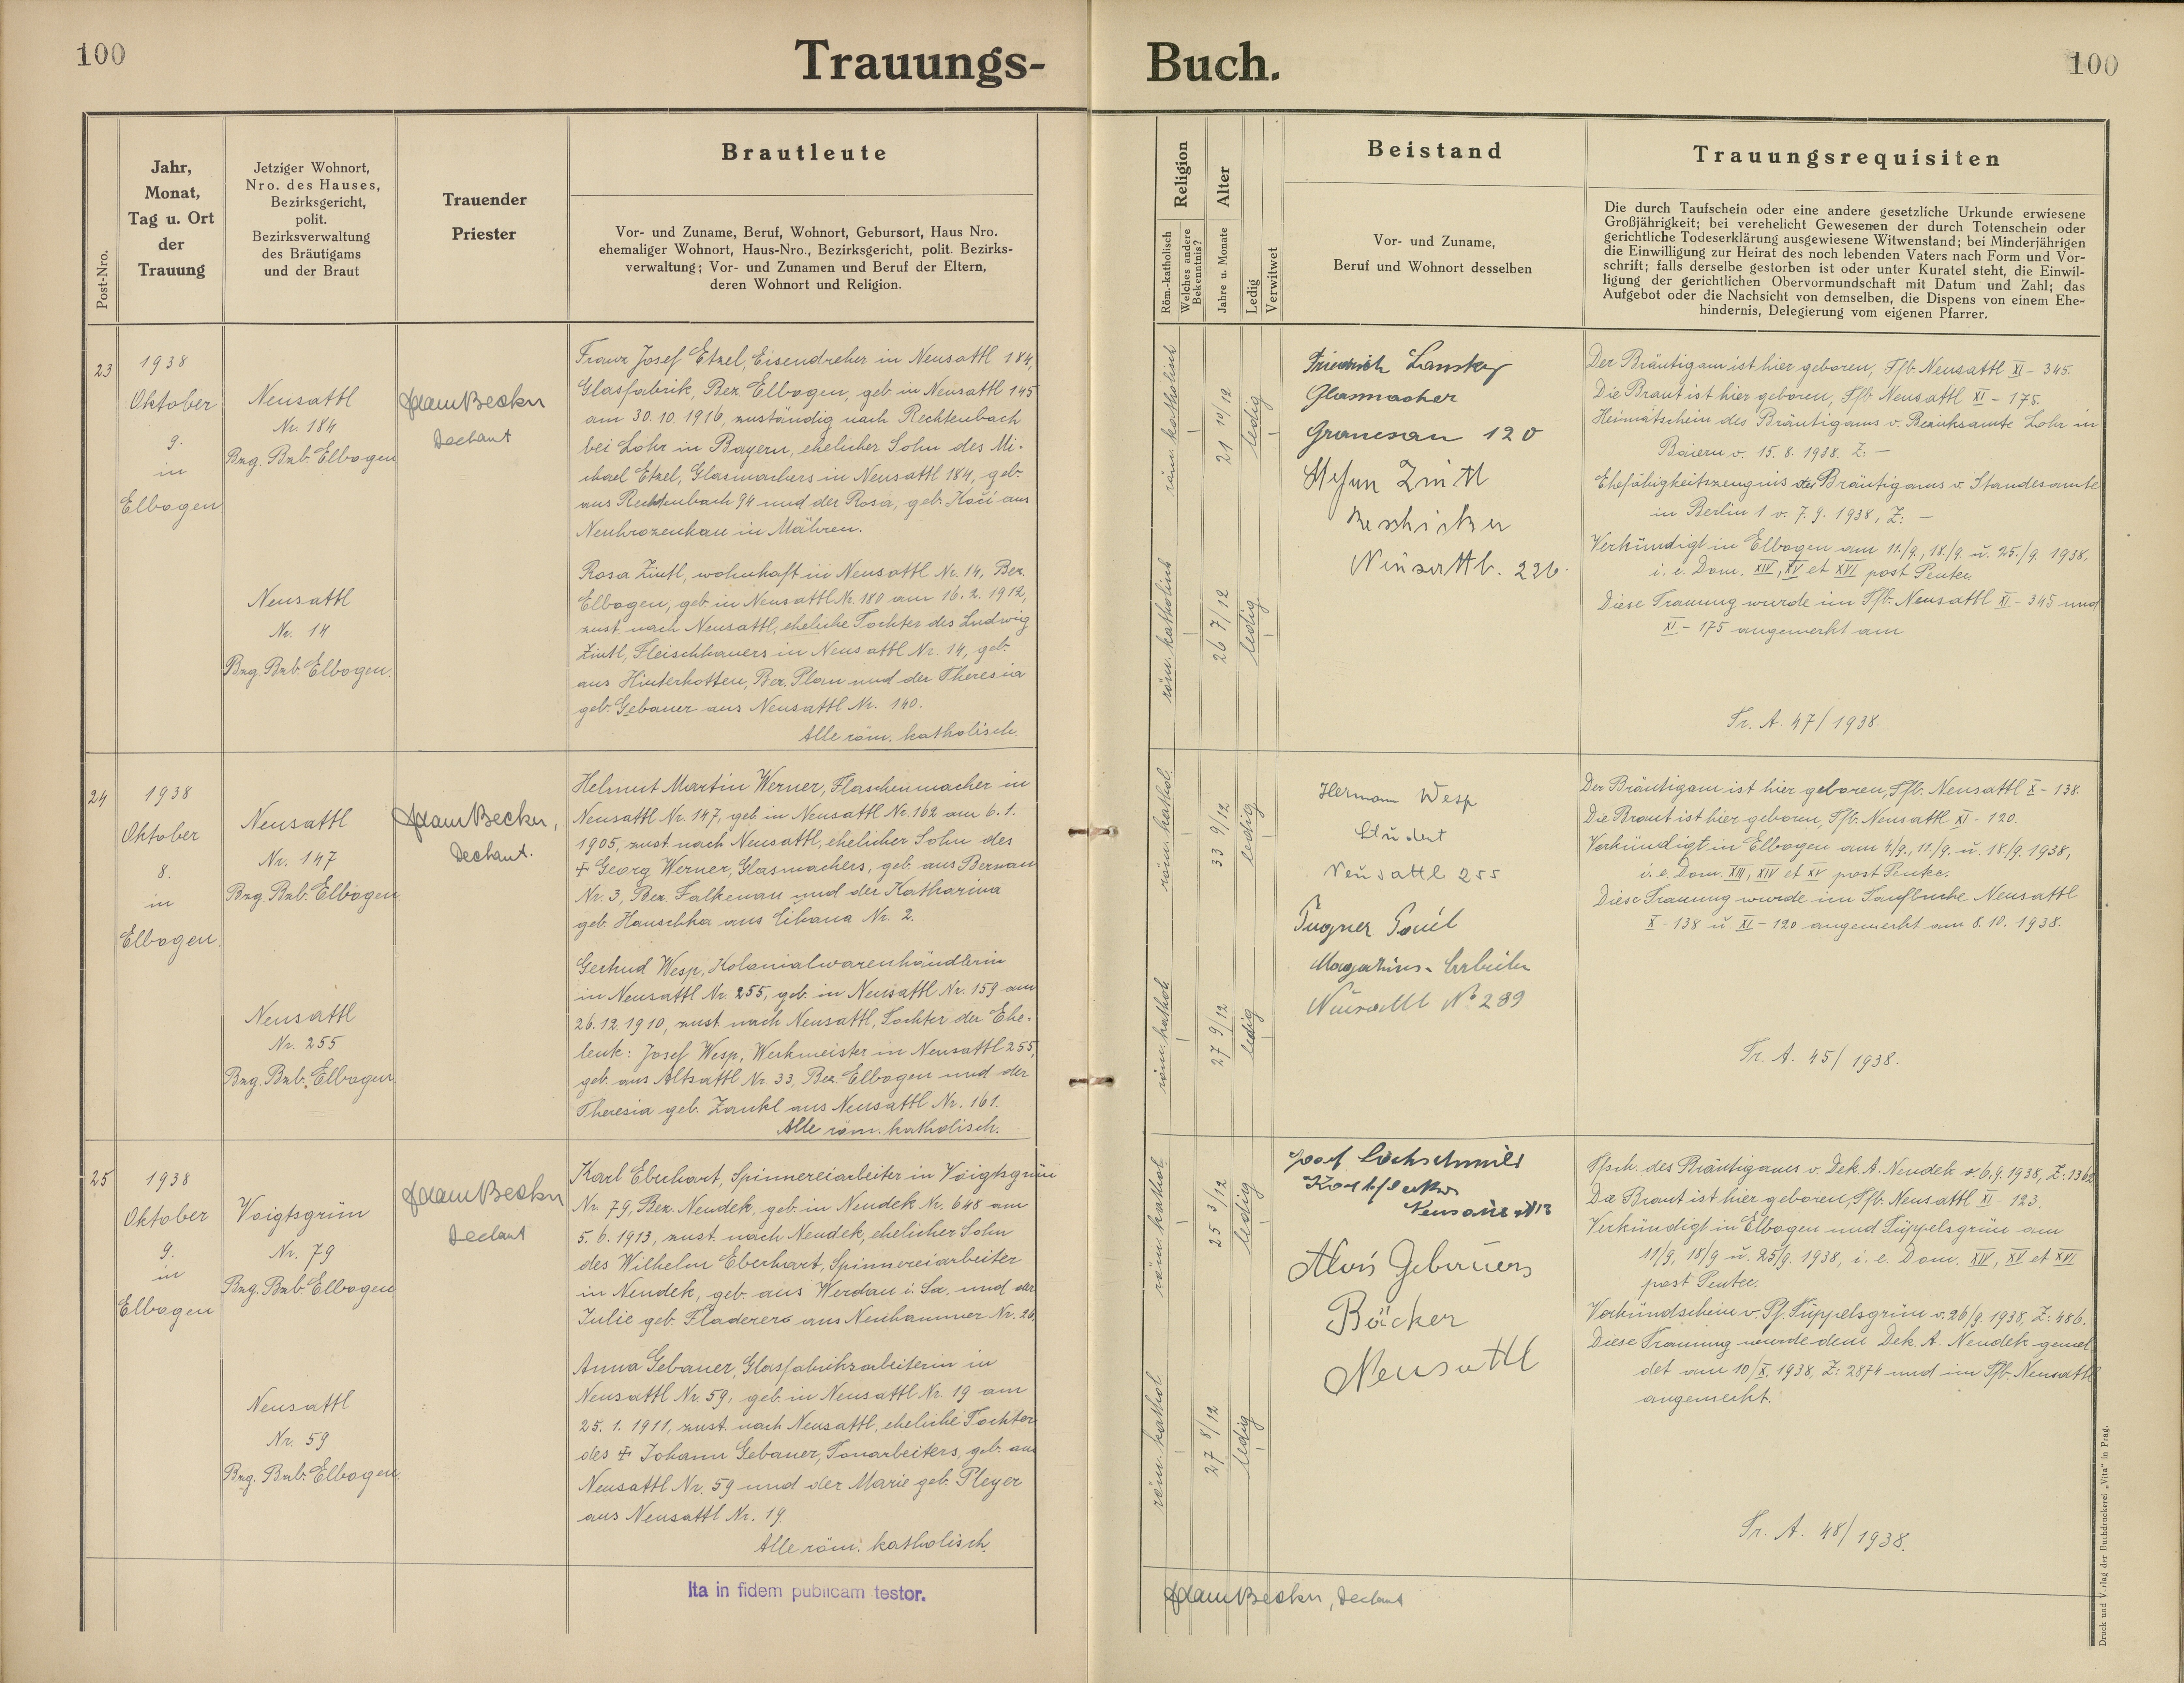 100
Trauungs-
Buch.
100
Post-Nro.
Jahr,
Monat,
Tag u. Ort
der
Trauung
Jetziger Wohnort,
Nro. des Hauses,
Bezirksgericht,
polit.
Bezirksverwaltung
des Bräutigams
und der Braut
Trauender
Priester
Brautleute
Vor- und Zuname, Beruf, Wohnort, Geburtsort, Haus Nro.
ehemaliger Wohnort, Haus-Nro., Bezirksgericht, polit. Bezirks-
verwaltung; Vor- und Zunamen und Beruf der Eltern,
deren Wohnort und Religion.
Religion
Röm.-katholisch
Welches andere
Bekenntnis?
Alter
Jahre u. Monate
Ledig
Verwitwet
Beistand
Vor- und Zuname,
Beruf und Wohnort desselben
Trauungsrequisiten
Die durch Taufschein oder eine andere gesetzliche Urkunde erwiesene
Großjährigkeit; bei verehelicht Gewesenen der durch Totenschein oder
gerichtliche Todeserklärung ausgewiesene Witwenstand; bei Minderjährigen
die Einwilligung zur Heirat des noch lebenden Vaters nach Form und Vor-
schrift; falls derselbe gestorben ist oder unter Kuratel steht, die Einwil-
ligung der gerichtlichen Obervormundschaft mit Datum und Zahl; das
Aufgebot oder die Nachsicht von demselben, die Dispens von einem Ehe-
hindernis, Delegierung vom eigenen Pfarrer.
23
1938
Oktober
9.
in
Elbogen
Neusattl
Nr. 184
Bzg. Bzb. Elbogen
Neusattl
Nr. 14
Bzg Bzb. Elbogen.
Adam Becker
Dechant
Franz Josef Etzel, Eisendreher in Neusattl 184,
Glasfabrik, Bez. Elbogen, geb. in Neusattl 145
am 30.10.1916, zuständig nach Rechtenbach
bei Lohr in Bayern, ehelicher Sohn des Mi-
chael Etzel, Glasmachers in Neusattl 184, geb.
aus Rechtenbach 94 und der Rosa, geb. Kočí aus
Neuhrozenkau in Mähren.
Rosa Zintl, wohnhaft in Neusattl Nr. 14, Bez.
Elbogen, geb. in Neusattl Nr. 180 am 16.2.1912,
zust. nach Neusattl, eheliche Tochter des Ludwig
Zintl, Fleischhauers in Neusattl Nr. 14, geb.
aus Hinterkotten, Bez. Plan und der Theresia
geb. Gebauer aus Neusattl Nr. 140.
Alle röm. katholisch.
röm. katholisch
21 10/12
ledig
röm. katholisch
26 7/12
ledig
Friedrich Lansky
Glasmacher
Granesau 120
Zintl
Neusattl. 226.
Der Bräutigam ist hier geboren, Tfb. Neusattl XI - 345.
Die Braut ist hier geboren, Tfb. Neusattl XI - 175.
Heimatschein des Bräutigams v. Bezirksamte Lohr in
Baiern v. 15.8.1938. Z. -
Ehefähigkeitszeugnis des Bräutigams v. Standesamte
in Berlin 1 v. 7.9.1938, Z: -
Verkündigt in Elbogen am 11./9., 18./9. u. 25./9. 1938,
i. e. Dom. XIV, XV et XVI post Pentec.
Diese Trauung wurde im Tfb. Neusattl XI - 345 und
XI - 175 angemerkt am
Tr. A. 47/1938.
24
1938
Oktober
8.
in
Elbogen.
Neusattl
Nr. 147
Bzg. Bzb. Elbogen
Neusattl
Nr. 255
Bzg. Bzb. Elbogen
Adam Becker,
Dechant.
Helmut Martin Werner, Flaschenmacher in
Neusattl Nr. 147, geb. in Neusattl Nr. 162 am 6.1.
1905, zust. nach Neusattl, ehelicher Sohn des
✝ Georg Werner, Glasmachers, geb. aus Bernau
Nr. 3, Bez. Falkenau und der Katharina
geb. Hauschka aus Čihana Nr. 2.
Gertrud Wesp, Kolonialwarenhändlerin
in Neusattl Nr. 255, geb. in Neusattl Nr. 159 am
26.12.1910, zust. nach Neusattl, Tochter der Ehe-
leute: Josef Wesp, Werkmeister in Neusattl 255,
geb. aus Altsattl Nr. 33, Bez. Elbogen und der
Theresia geb. Zankl aus Neusattl Nr. 161.
Alle röm. katholisch.
röm. kathol.
33 9/12
ledig
röm. kathol.
27 9/12
ledig
Hermann Wesp
Student
Neusattl 255
Magazins-Arbeiter
Neusattl No 289
Der Bräutigam ist hier geboren, Tfb. Neusattl X - 138.
Die Braut ist hier geboren, Tfb. Neusattl XI - 120.
Verkündigt in Elbogen am 4/9., 11/9. u. 18/9. 1938,
i. e. Dom. XIII, XIV et XV post Pentec.
Diese Trauung wurde im Taufbuche Neusattl
X - 138 u. XI - 120 angemerkt am 8.10.1938.
Tr. A. 45/1938.
25
1938
Oktober
9.
in
Elbogen
Voigtsgrün
Nr. 79
Bzg. Bzb. Elbogen
Neusattl
Nr. 59
Bzg. Bzb. Elbogen.
Adam Becker
Dechant
Karl Eberhart, Spinnereiarbeiter in Voigtsgrün
Nr. 79, Bez. Neudek, geb. in Neudek Nr. 648 am
5.6.1913, zust. nach Neudek, ehelicher Sohn
des Wilhelm Eberhart, Spinnereiarbeiter
in Neudek, geb. aus Werdau i. Sa. und der
Julie geb. Fladerer aus Neuhammer Nr. 26.
Anna Gebauer, Glasfabriksarbeiterin in
Neusattl Nr. 59, geb. in Neusattl Nr. 19 am
25.1.1911, zust. nach Neusattl, eheliche Tochter
des ✝ Johann Gebauer, Tonarbeiters, geb. aus
Neusattl Nr. 59 und der Marie geb. Pleyer
aus Neusattl Nr. 19.
Alle röm. katholisch.
röm. kathol.
25 3/12
ledig
röm. kathol.
27 8/12
ledig
Josef Lochschmidt
Alois Gebauer
Bäcker
Neusattl
Tfsch. des Bräutigams v. Dek. A. Neudek v. 6.9.1938, Z: 1362
Die Braut ist hier geboren, Tfb. Neusattl XI - 123.
Verkündigt in Elbogen und Tüppelsgrün am
11/9, 18/9 u. 25/9. 1938, i. e. Dom. XIV, XV et XVI
post Pentec.
Verkündschein v. Pf. Tüppelsgrün v. 26/9. 1938, Z: 486.
Diese Trauung wurde dem Dek. A. Neudek gemel-
det am 10/X. 1938, Z: 2874 und im Tfb. Neusattl
angemerkt.
Tr. A. 48/1938.
Ita in fidem publicam testor.
Adam Becker, Dechant
Druck und Verlag der Buchdruckerei „Vita" in Prag.